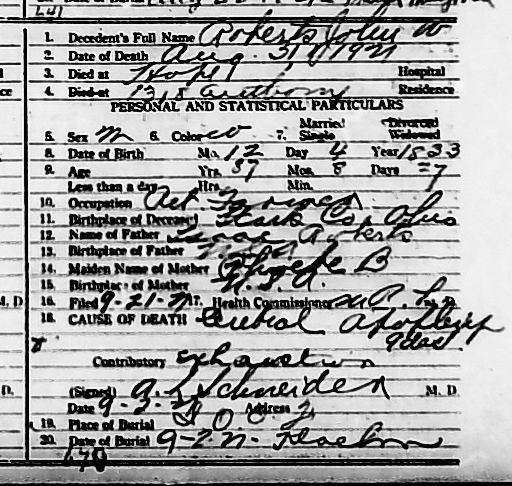 1. Decedent's Full Name Roberts John W
2. Date of Death Aug. 31, 1921
3. Died at Hospital
4. Died at 1318 Anthony Residence
PERSONAL AND STATISTICAL PARTICULARS
5. Sex M 6. Color W 7. Married Single Divorced Widowed
8. Date of Birth Mo. 12 Day 4 Year 1833
9. Age Yrs. 87 Mos. 8 Days 27
Less than a day Hrs. Min.
10. Occupation Ret Farmer
11. Birthplace of Deceased Stark Co., Ohio
12. Name of Father Isaac Roberts
13. Birthplace of Father
14. Maiden Name of Mother Phoebe B
15. Birthplace of Mother U.S.A.
16. Filed 9-21-21 17. Health Commissioner M.D.
18. CAUSE OF DEATH Cerebral Apoplexy
9 das
Contributory exhaustion
(Signed) A. L. Schneider M. D.
Date 9-2-21 Address
19. Place of Burial I O O F
20. Date of Burial 9-2-21